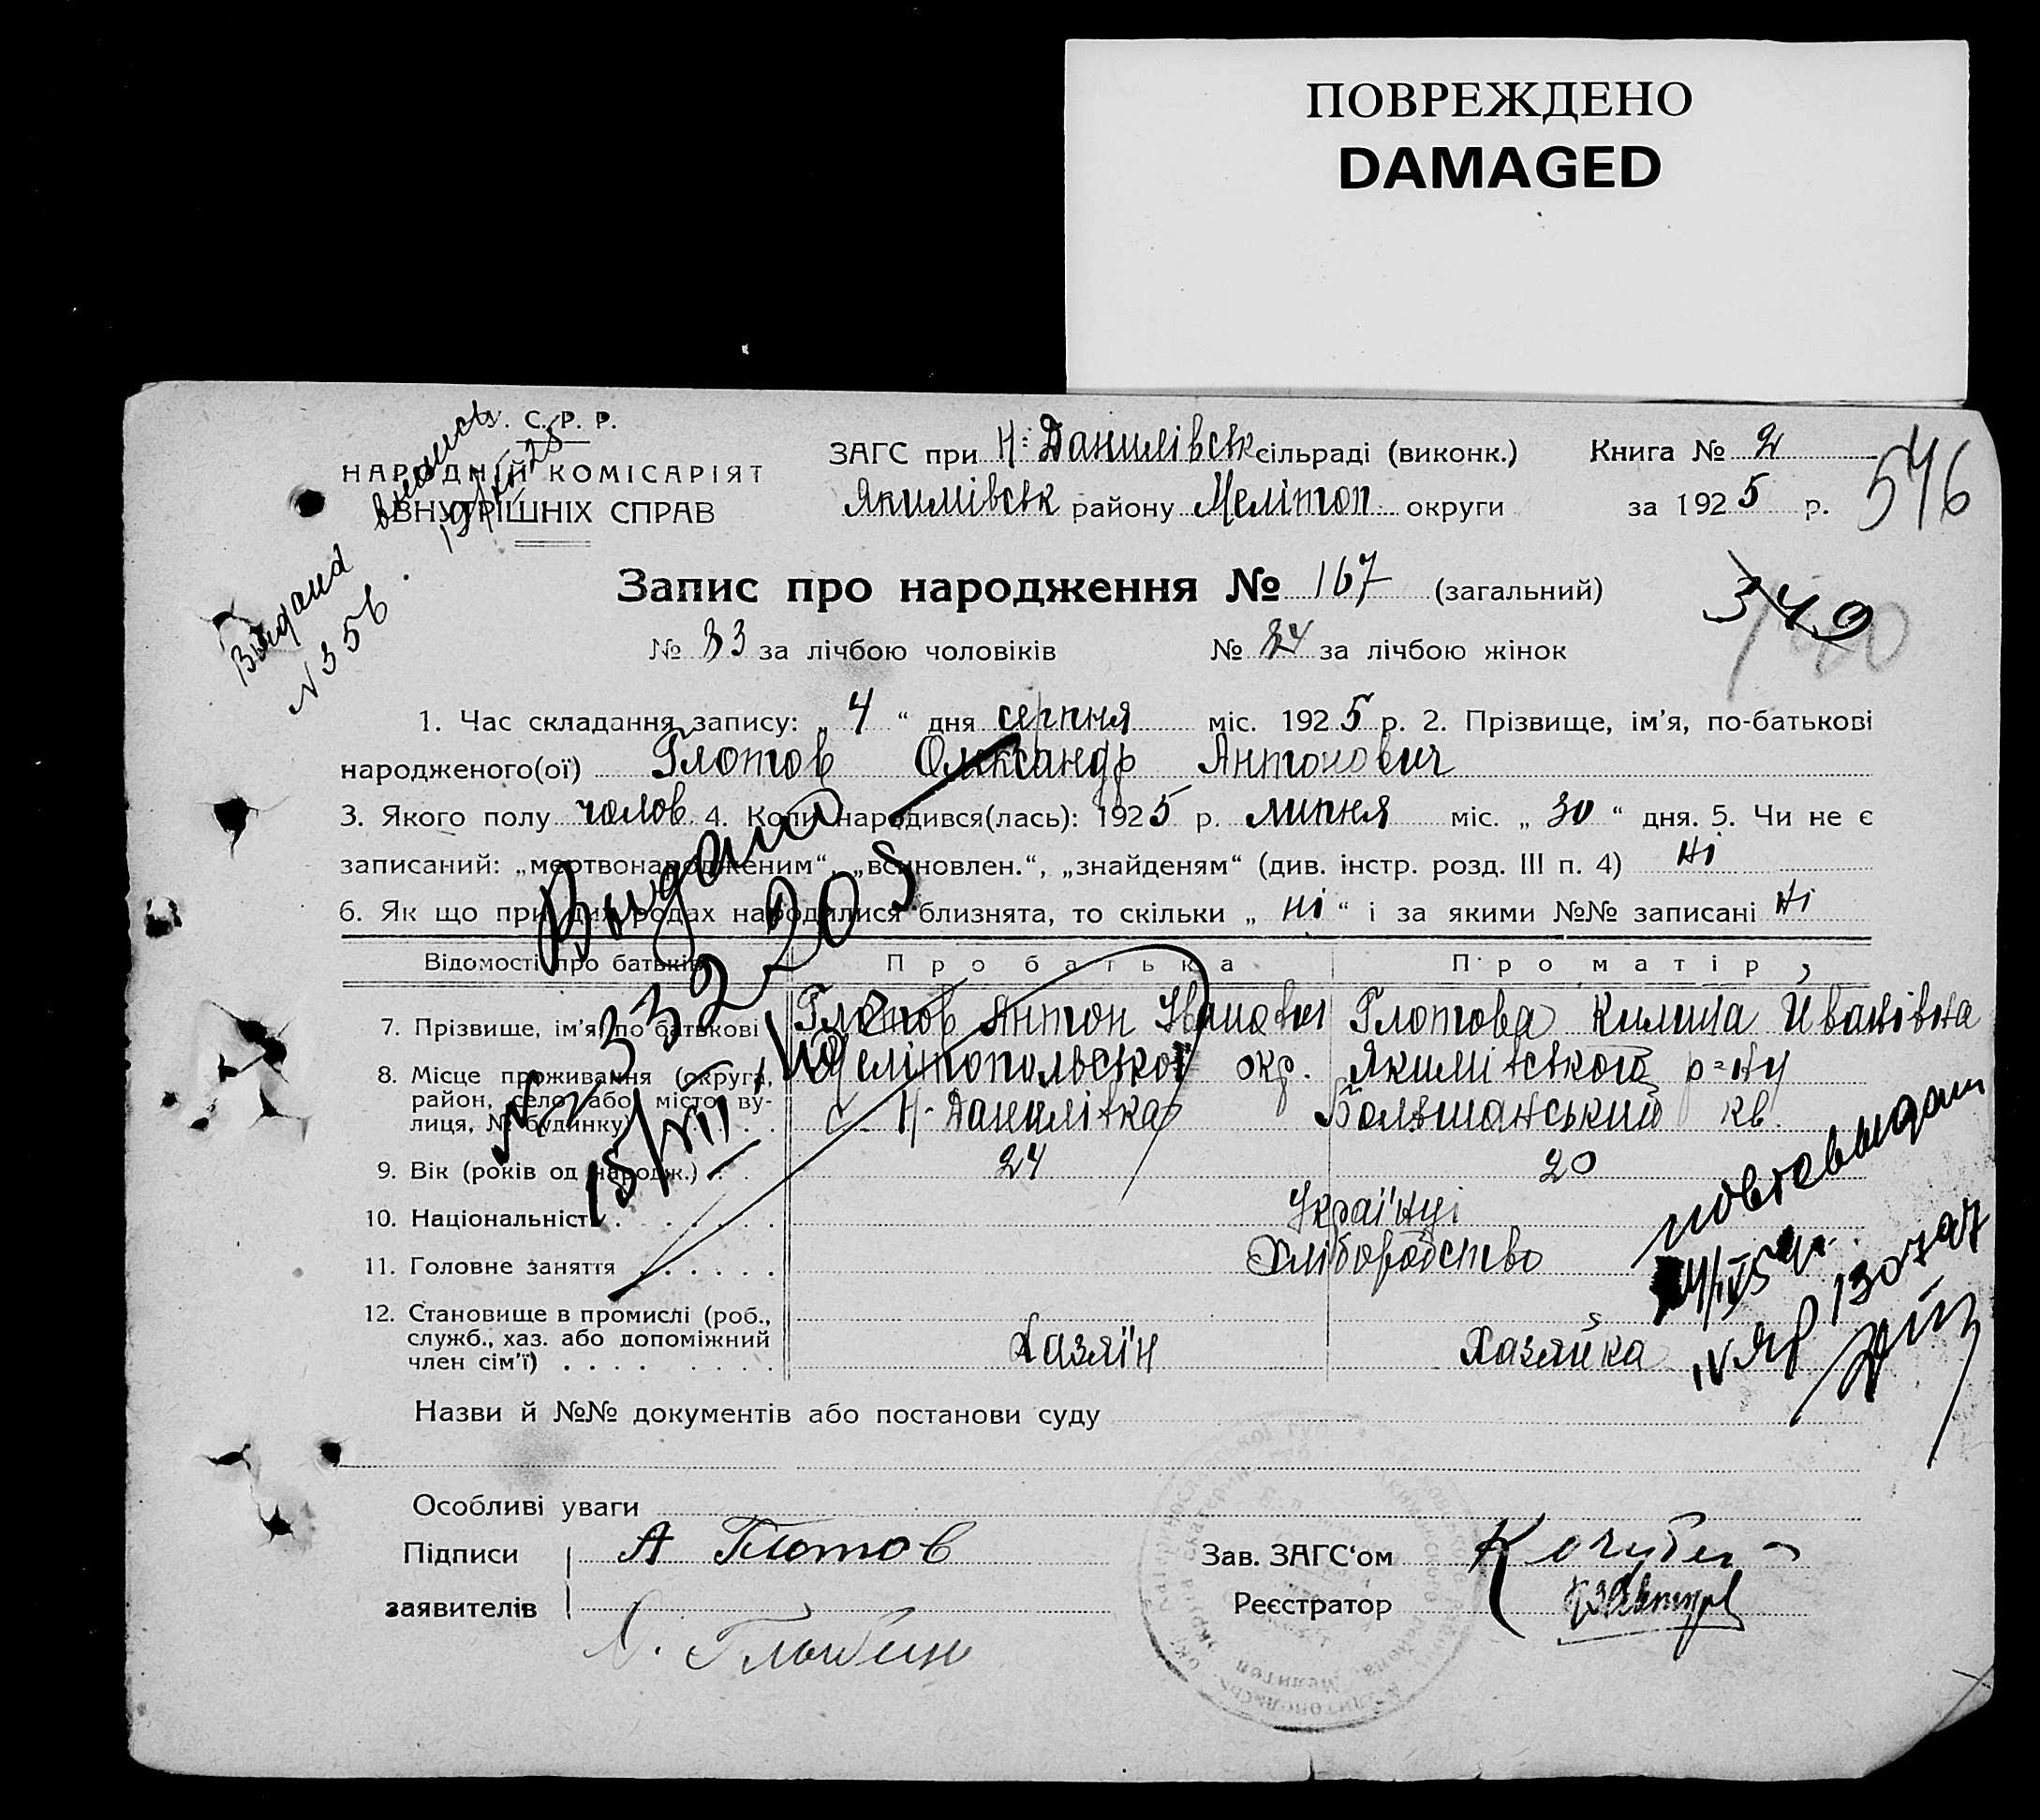 ПОВРЕЖДЕНО
DAMAGED
У. С. Р. Р.
НАРОДНІЙ КОМІСАРІЯТ
ВНУТРІШНІХ СПРАВ
ЗАГС при Н-Данилівськ сільраді (виконк.)
Якимівськ району Мелітоп округи
Книга № 2
за 1925 р.
546
Видана
№ 356.
Запис про народження № 167 (загальний)
349
№ 83 за лічбою чоловіків № 84 за лічбою жінок
1. Час складання запису: „ 4 “ дня серпня міс. 1925 р. 2. Прізвище, ім’я, по-батькові
народженого(ої) Глотов Олександр Антонович
3. Якого полу чолов. 4. Коли народився(лась): 1925 р. липня міс. „ 30 “ дня. 5. Чи не є
записаний: „мертвонародженим“, „всиновлен.“, „знайденям“ (див. інстр. розд. III п. 4) ні
6. Як що при цих родах народилися близнята, то скільки „ ні “ і за якими №№ записані ні
Відомості про батьків Про батька Про матір
7. Прізвище, ім’я, по батькові Глотов Антон Іванович Глотова Килина Иванівна
8. Місце проживання (округа, Мелітопольської окр. Якимівського р=ну
район, село або місто, ву- с. Н-Данилівка Большанський кв.
лиця, № будинку)
9. Вік (років од народж.) 24 20
10. Національність Українці
11. Головне заняття Хліборобство
12. Становище в промислі (роб.,
служб., хаз. або допоміжний
член сім’ї) Хазяїн Хазяйка
Видано
Назви й №№ документів або постанови суду
Особливі уваги
Підписи А Глотов
заявителів
Зав. ЗАГС‘ом Кочубей
Реєстратор